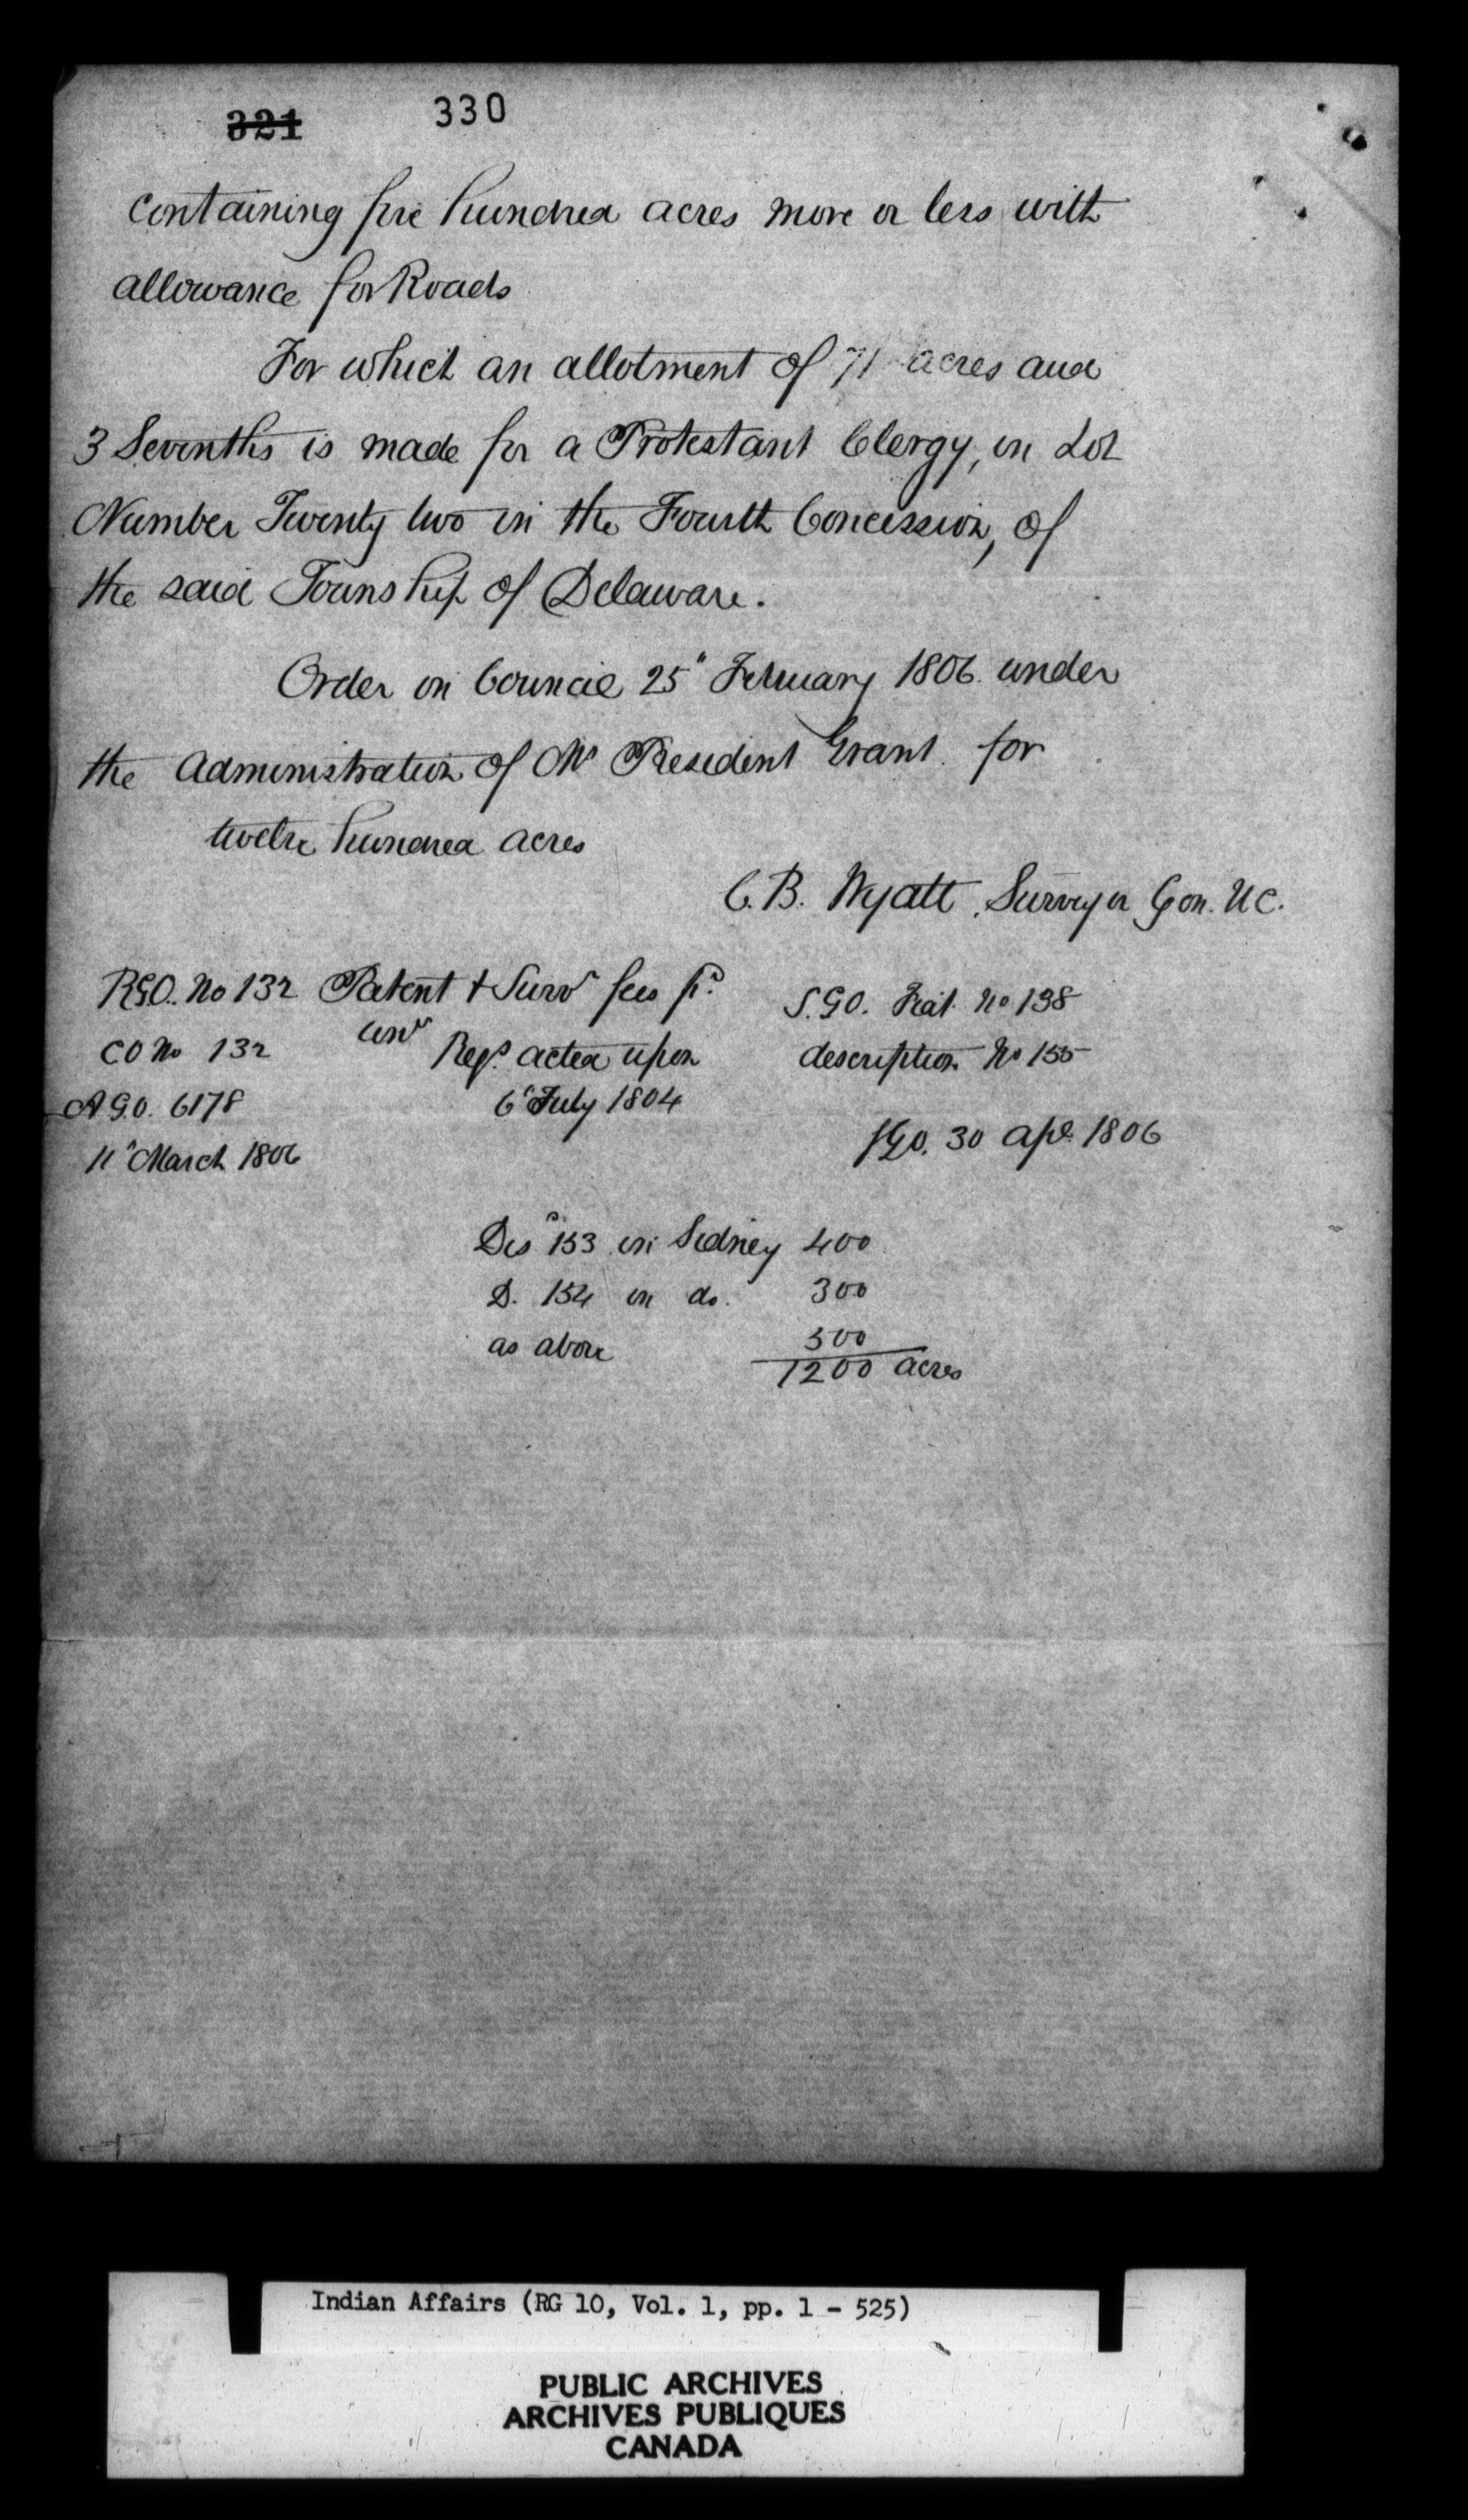 321 330
containing five hundred acres more or less with
allowance for Roads
For which an allotment of 71 acres and
3 Sevenths is made for a Protestant Clergy, in Lot
Number Twenty two in the Fourth Concession, of
the said Township of Delaware.
Order in Council 25" February 1806 under
the Administration of Mr President Grant for
twelve hundred acres
C. B. Wyatt, Surveyor Gen. U.C.
R.G.O. No 132 Patent & Survr fees pd.
S.G.O. Fiat No 138
C O No 132 Regs. acted upon
description No 155
A.G.O. 6178 6" July 1804
11" March 1806
S.G.O. 30 Apl 1806
Des 153 in Sidney 400
D. 154 in do. 300
as above 500
1200 acres
Indian Affairs (RG 10, Vol. 1, pp. 1 - 525)
PUBLIC ARCHIVES
ARCHIVES PUBLIQUES
CANADA